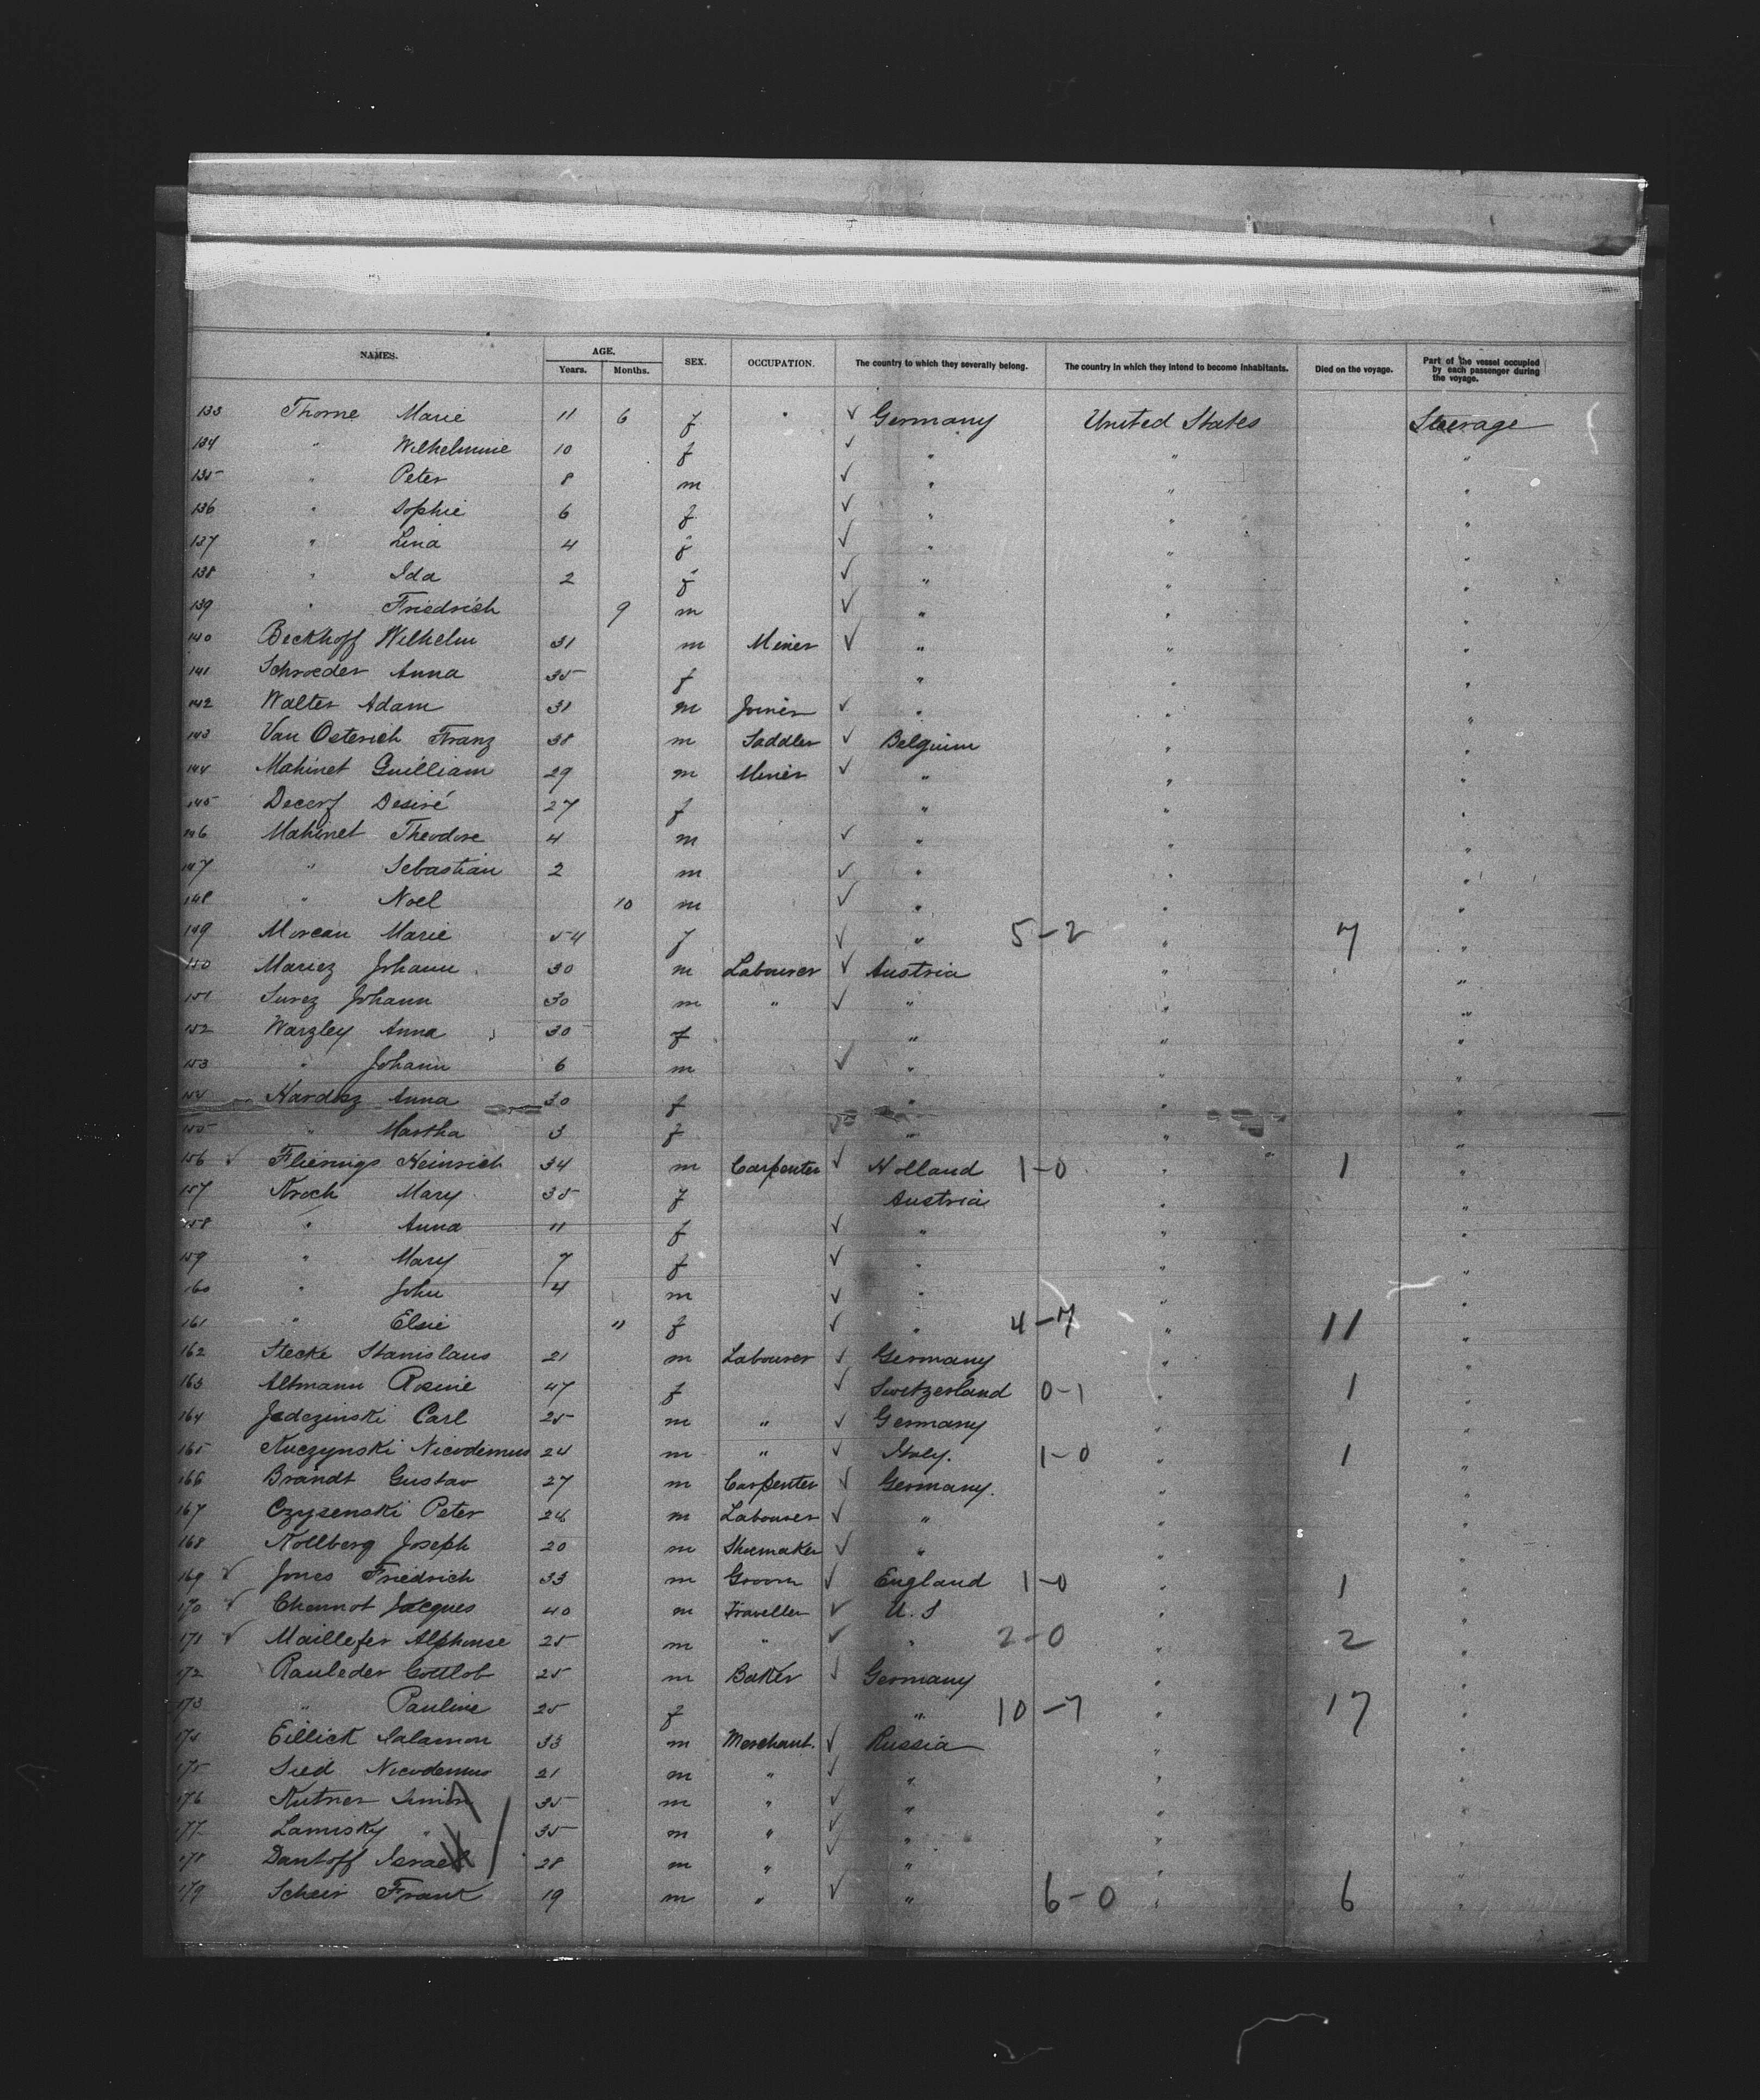 NAMES. AGE. SEX. OCCUPATION. The country to which they severally belong. The country in which they intend to become inhabitants. Died on the voyage. Part of the vessel occupied by each passenger during the voyage.
Years. Months.
133 Thorne Marie 11 6 f " ✓ Germany United States Steerage
134 " Wilhelmine 10 f ✓ " " "
135 " Peter 8 m ✓ " " "
136 " Sophie 6 f ✓ " " "
137 " Lina 4 f ✓ " " "
138 " Ida 2 f ✓ " " "
139 " Friedrich 9 m ✓ " " "
140 Beckhoff Wilhelm 31 m Miner ✓ " " "
141 Schroeder Anna 35 f " " "
142 Walter Adam 31 m Joiner ✓ " " "
143 Van Oeterich Franz 38 m Saddler ✓ Belguim " "
144 Mahinet Guilliam 29 m Miner ✓ " " "
145 Decerf Desiré 27 f " " "
146 Mahinet Theodore 4 m ✓ " " "
147 " Sebastian 2 m ✓ " " "
148 " Noel 10 m ✓ " " "
149 Moreau Marie 54 f ✓ " 5-2 " 7 "
150 Mariez Johann 30 m Labourer ✓ Austria " "
151 Surez Johann 30 m " ✓ " " "
152 Warzley Anna 30 f " " "
153 " Johann 6 m ✓ " " "
154 Hardisz Anna 30 f " " "
155 " Martha 3 f ✓ " " "
156 ✓ Flierings Heinrich 34 m Carpenter ✓ Holland 1-0 " 1 "
157 Kroch Mary 35 f Austria " "
158 " Anna 11 f ✓ " " "
159 " Mary 7 f ✓ " " "
160 " John 4 m ✓ " " "
161 " Elsie " f ✓ " 4-7 " 11 "
162 Stecke Stanislaus 21 m Labourer ✓ Germany " "
163 Altmann Rosine 47 f ✓ Switzerland 0-1 " 1 "
164 Jedczinski Carl 25 m " ✓ Germany " "
165 Kuczynski Nicodemus 24 m " ✓ Italy. 1-0 " 1 "
166 Brandt Gustav 27 m Carpenter ✓ Germany. " "
167 Czysenski Peter 26 m Labourer ✓ " " "
168 Kollberg Joseph 20 m Shoemaker ✓ " " "
169 ✓ Jones Friedrich 33 m Groom ✓ England 1-0 " 1 "
170 ✓ Chennot Jacques 40 m Traveller ✓ U.S " "
171 ✓ Maillefer Alphonse 25 m " ✓ " 2-0 " 2 "
172 Rauleder Gottlob 25 m Baker ✓ Germany " "
173 " Pauline 25 f " 10-7 " 17 "
174 Eillick Salamon 33 m Merchant. ✓ Russia " "
175 Sied Nicodemus 21 m " ✓ " " "
176 Kutner Simon 35 m " ✓ " " "
177 Lamisky " 35 m " ✓ " " "
178 Dantoff Israel 28 m " ✓ " " "
179 Scheir Frank 19 m " ✓ " 6-0 " 6 "